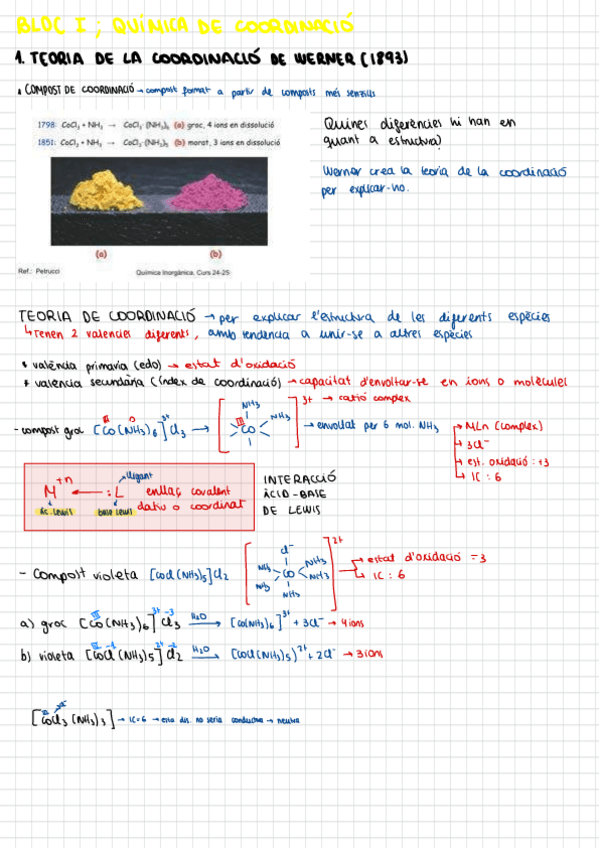 BLOC I ; QUÍMICA DE COORDINACIÓ
1. TEORIA DE LA COORDINACIÓ DE WERNER (1893)
COMPOST DE COORDINACIÓ → compost format a partir de composts més senzills
1798: CoCl₂ + NH₃ → CoCl₃·(NH₃)₆ (a) groc, 4 ions en dissolució
1851: CoCl₂ + NH₃ → CoCl₃·(NH₃)₅ (b) morat, 3 ions en dissolució
(a) (b)
Ref.: Petrucci Química Inorgànica. Curs 24-25
Quines diferències hi han en
quant a estructura?
Werner crea la teoria de la coordinació
per explicar-ho.
TEORIA DE COORDINACIÓ → per explicar l'estructura de les diferents espècies
↳ Tenen 2 valencies diferents, amb tendència a unir-se a altres espècies
* valència primaria (edo) → estat d'oxidació
* valencia secundària (índex de coordinació) → capacitat d'envoltar-se en ions o molècules
- compost groc [Co(NH₃)₆]Cl₃ →
III 0 3+
NH₃
NH₃
III
Co
3+ → catió complex
→ envoltat per 6 mol. NH₃
→ MLn (complex)
→ 3Cl⁻
→ est. oxidació: +3
→ IC : 6
M⁺ⁿ ← :L
lligant
àc. Lewis base Lewis
enllaç covalent
datiu o coordinat
INTERACCIÓ
ÀCID-BASE
DE LEWIS
- Compost violeta [CoCl(NH₃)₅]Cl₂
Cl⁻
NH₃ NH₃
Co
NH₃ NH₃
NH₃
2+
→ estat d'oxidació = 3
→ IC : 6
a) groc [Co(NH₃)₆]Cl₃ H₂O → [Co(NH₃)₆]³⁺ + 3Cl⁻ → 4 ions
III 3+ -3
b) violeta [CoCl(NH₃)₅]Cl₂ H₂O → [CoCl(NH₃)₅]²⁺ + 2Cl⁻ → 3 ions
III -1 2+ -2
[CoCl₃(NH₃)₃] → IC=6 → esta dis. no seria conductiva → neutra